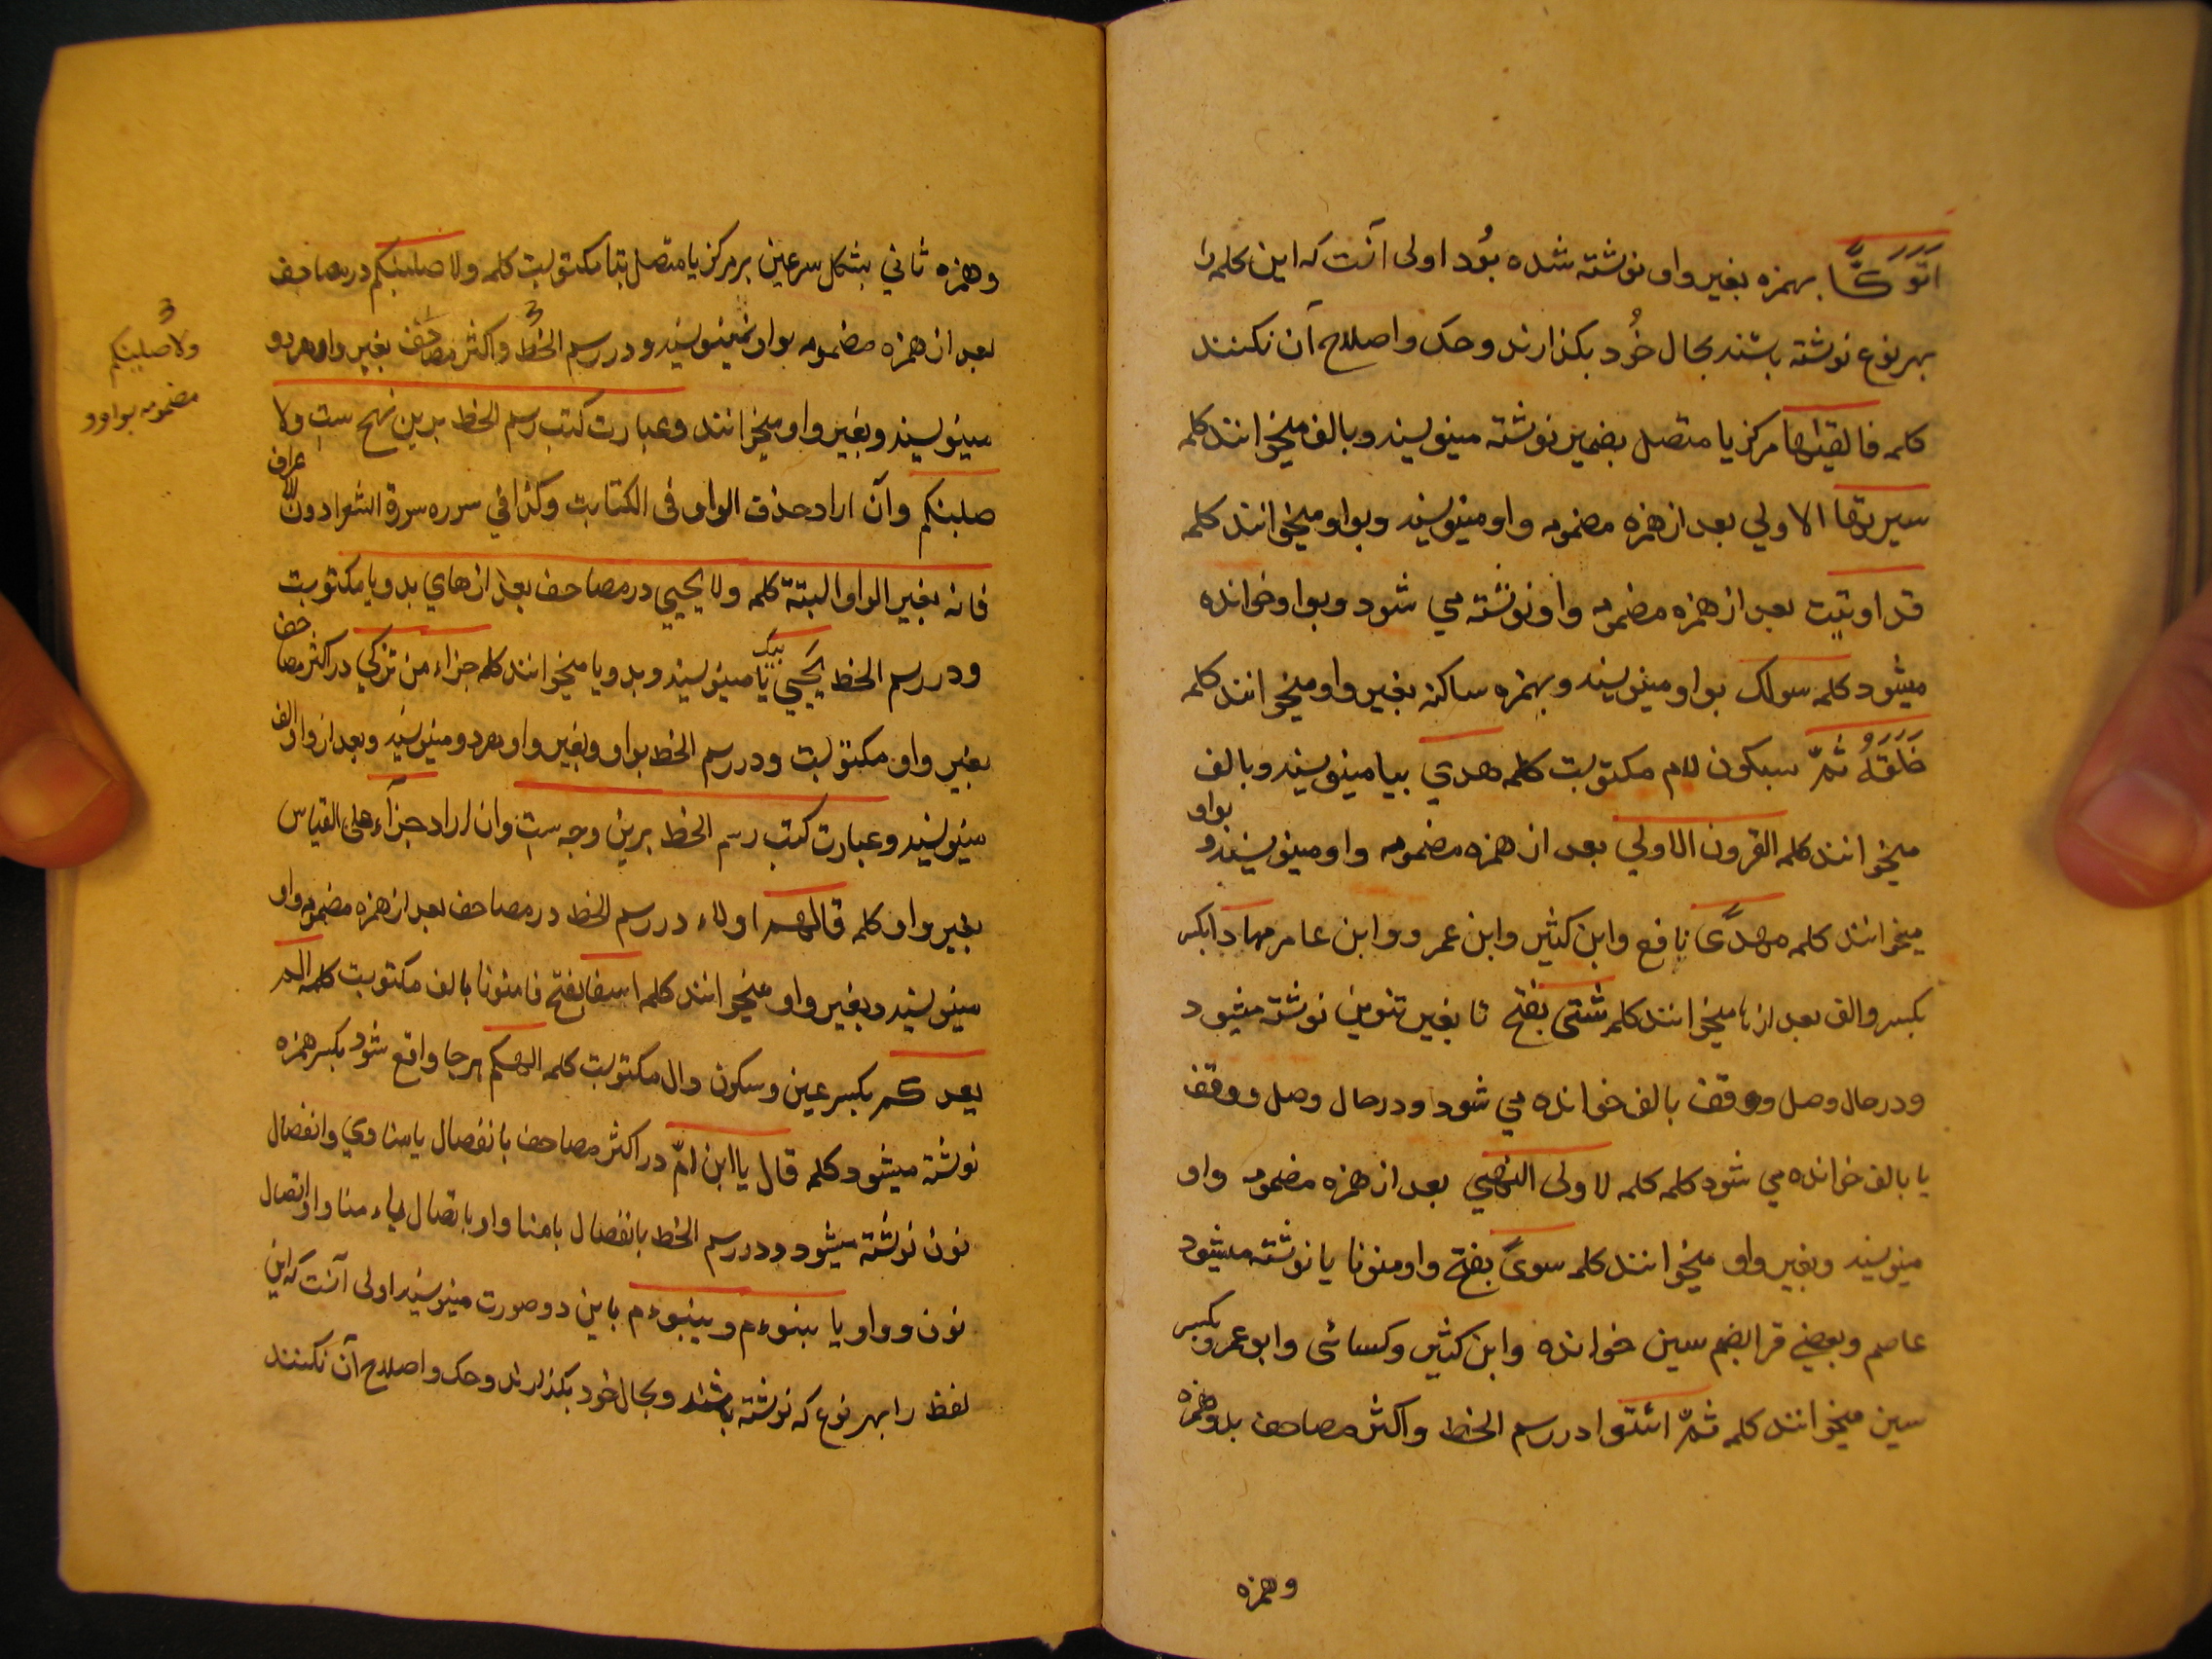 اَتَوَكَّا بهمزه بغیر واو نوشته شده بُود اولی آنست که این کلمه را
بهر نوع نوشته باشند بحال خُود بکذارند وحک واصلاح آن نکنند
کلمه فالقیٰها مرکز یا متصل بضمیر نوشته مینویسند وبالف میخوانند کلمه
سیرتها الاولي بعد از همزه مضمومه واو مینویسند وبواو میخوانند کلمه
قد اوتیت بعد از همزه مضمومه واو نوشته مي شود وبواو خوانده
میشود کلمه سولک بواو مینویسند وبهمزه ساکنه بغیر واو میخوانند کلمه
خَلَقَهُ ثمّ بسکون لام مکتوبست کلمه هدي بیا مینویسند وبالف
میخوانند کلمه القرون الاولي بعد از همزه مضمومه واو مینویسند و بواو
میخوانند کلمه مهدًی نافع وابن کثیر وابن عمرو وابن عامر مهادا بکسر
بکسر والف بعد از ها میخوانند کلمه شتی بفتح تا بغیر تنوین نوشته میشود
ودر حال وصل ووقف بالف خوانده مي شود ودر حال وصل ووقف
یا بالف خوانده مي شود کلمه کلمه لاولی النهي بعد از همزه مضمومه واو
مینویسند وبغیر واو میخوانند کلمه سویً بفتح واو منونا یا نوشته میشود
عاصم وبعضي قرا بضم سین خوانده وابن کثیر وکسائی وابو عمرو بکسر
سین میخوانند کلمه ثمّ ائتوا در رسم الخط واکثر مصاحف بدو همزه
وهمزه
وهمزه ثاني بشکل سرعین بر مرکز یا متصل بتا مکتوبست کلمه ولاصلبنکم در مصاحف
بعد از همزه مضمومه بواو نمینویسند ودر رسم الخط واکثر مصاحف بغیر واو هر دو
مینویسند وبغیر واو میخوانند وعبارت کتب رسم الخط برین نهج ست ولا
صلبنکم وآن اراد حذف الواو فی الکتابت وکذا في سوره سورة الشعرا دون الاعراف
فانه بغیر الواو البتة کلمه ولا یحیي در مصاحف بعد از هاي بدو یا مکتوبست
ودر رسم الخط یَحیي بیک یا مینویسند وبدو یا میخوانند کلمه جزاء من تزکي در اکثر مصاحف
بغیر واو مکتوبست ودر رسم الخط بواو وبغیر واو هردو مینویسند وبعد از واو الف
مینویسند وعبارت کتب رسم الخط برین وجه ست وان اراد جزآء علی القیاس
بغیر واو کلمه قال هم اولاء در رسم الخط در مصاحف بعد از همزه مضمومه واو
مینویسند وبغیر واو میخوانند کلمه اسفا بفتح فا منونا بالف مکتوبست کلمه الم
یعدکم بکسر عین وسکون دال مکتوبست کلمه الهکم هرجا واقع شود بکسر همزه
نوشته میشود کلمه قال یا ابن امّ در اکثر مصاحف بانفصال یا منادي وانفصال
نون نوشته میشود ودر رسم الخط بانفصال یا منادا وباتصال یاء منادا واتصال
نون وواو یا یبنوءم وینبوءم باین دو صورت مینویسند اولی آنست که این
لفظ را بهر نوع که نوشته باشند وبحال خود بکذارند وحک واصلاح آن نکنند
ولاصلبنکم
مضمومه بواو و